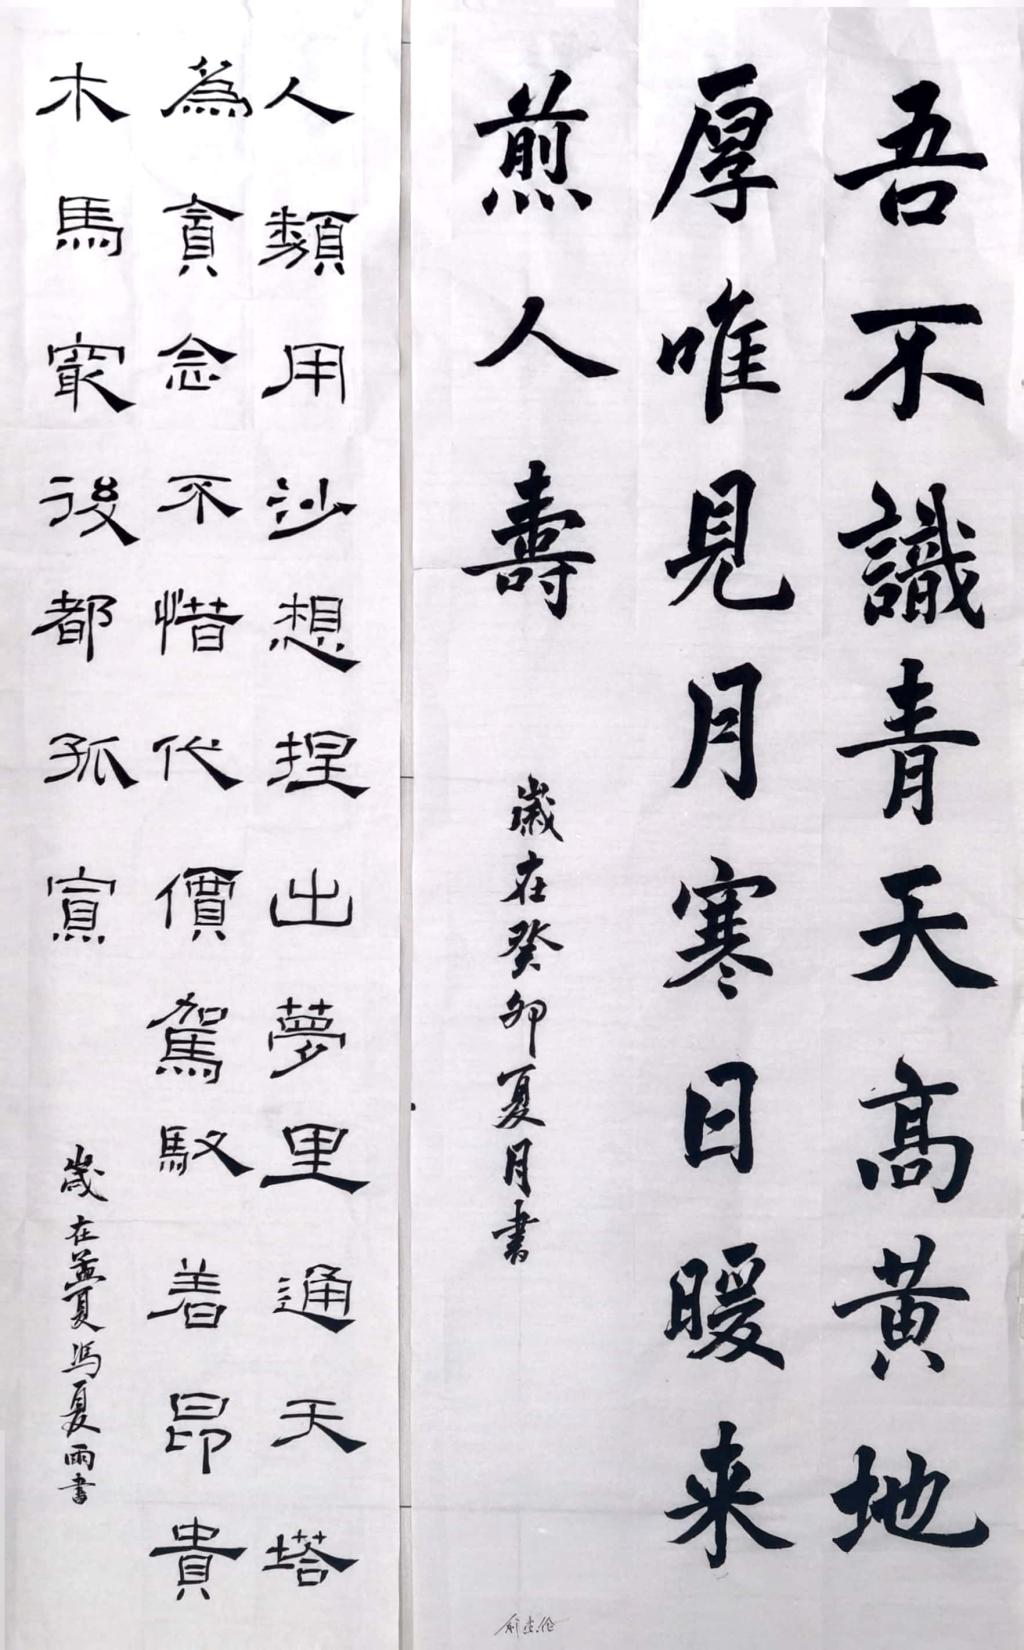 吾不識青天髙黃地
厚唯見月寒日暖来
煎人壽
歲在癸卯夏月書
人類用沙想捏出夢里通天塔
為貪念不惜代價駕馭着昂貴
木馬最後都孤寡
歲在孟夏馮夏雨書